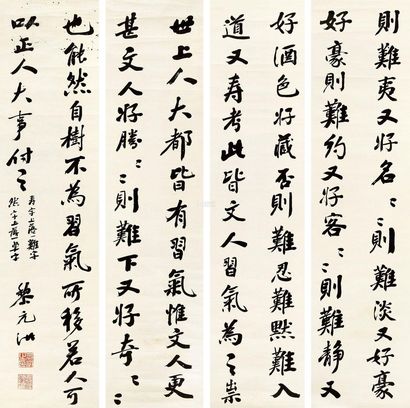 則難夷又好名〻則難淡又好豪
好豪則難約又好客〻則難靜又
好酒色好臧否則難忍難默難入
道又壽考此皆文人習氣為之祟
世上人大都皆有習氣惟文人更
甚文人好勝〻則難下又好奇〻
也能然自樹不為習氣所移若人可
以正人大事付之
壽字上落一難字
然字上落卓字
黎元洪